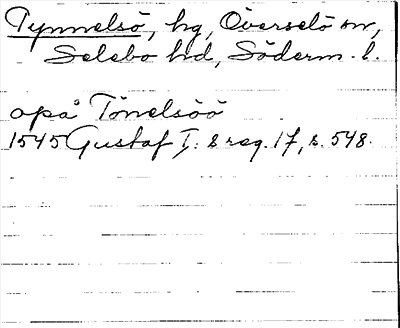 Tynnelsö, hg, Överselö sn,
Selebo hd, Söderm. l.
opå Tönelsöö
1545 Gustaf I: s reg. 17, s. 548.